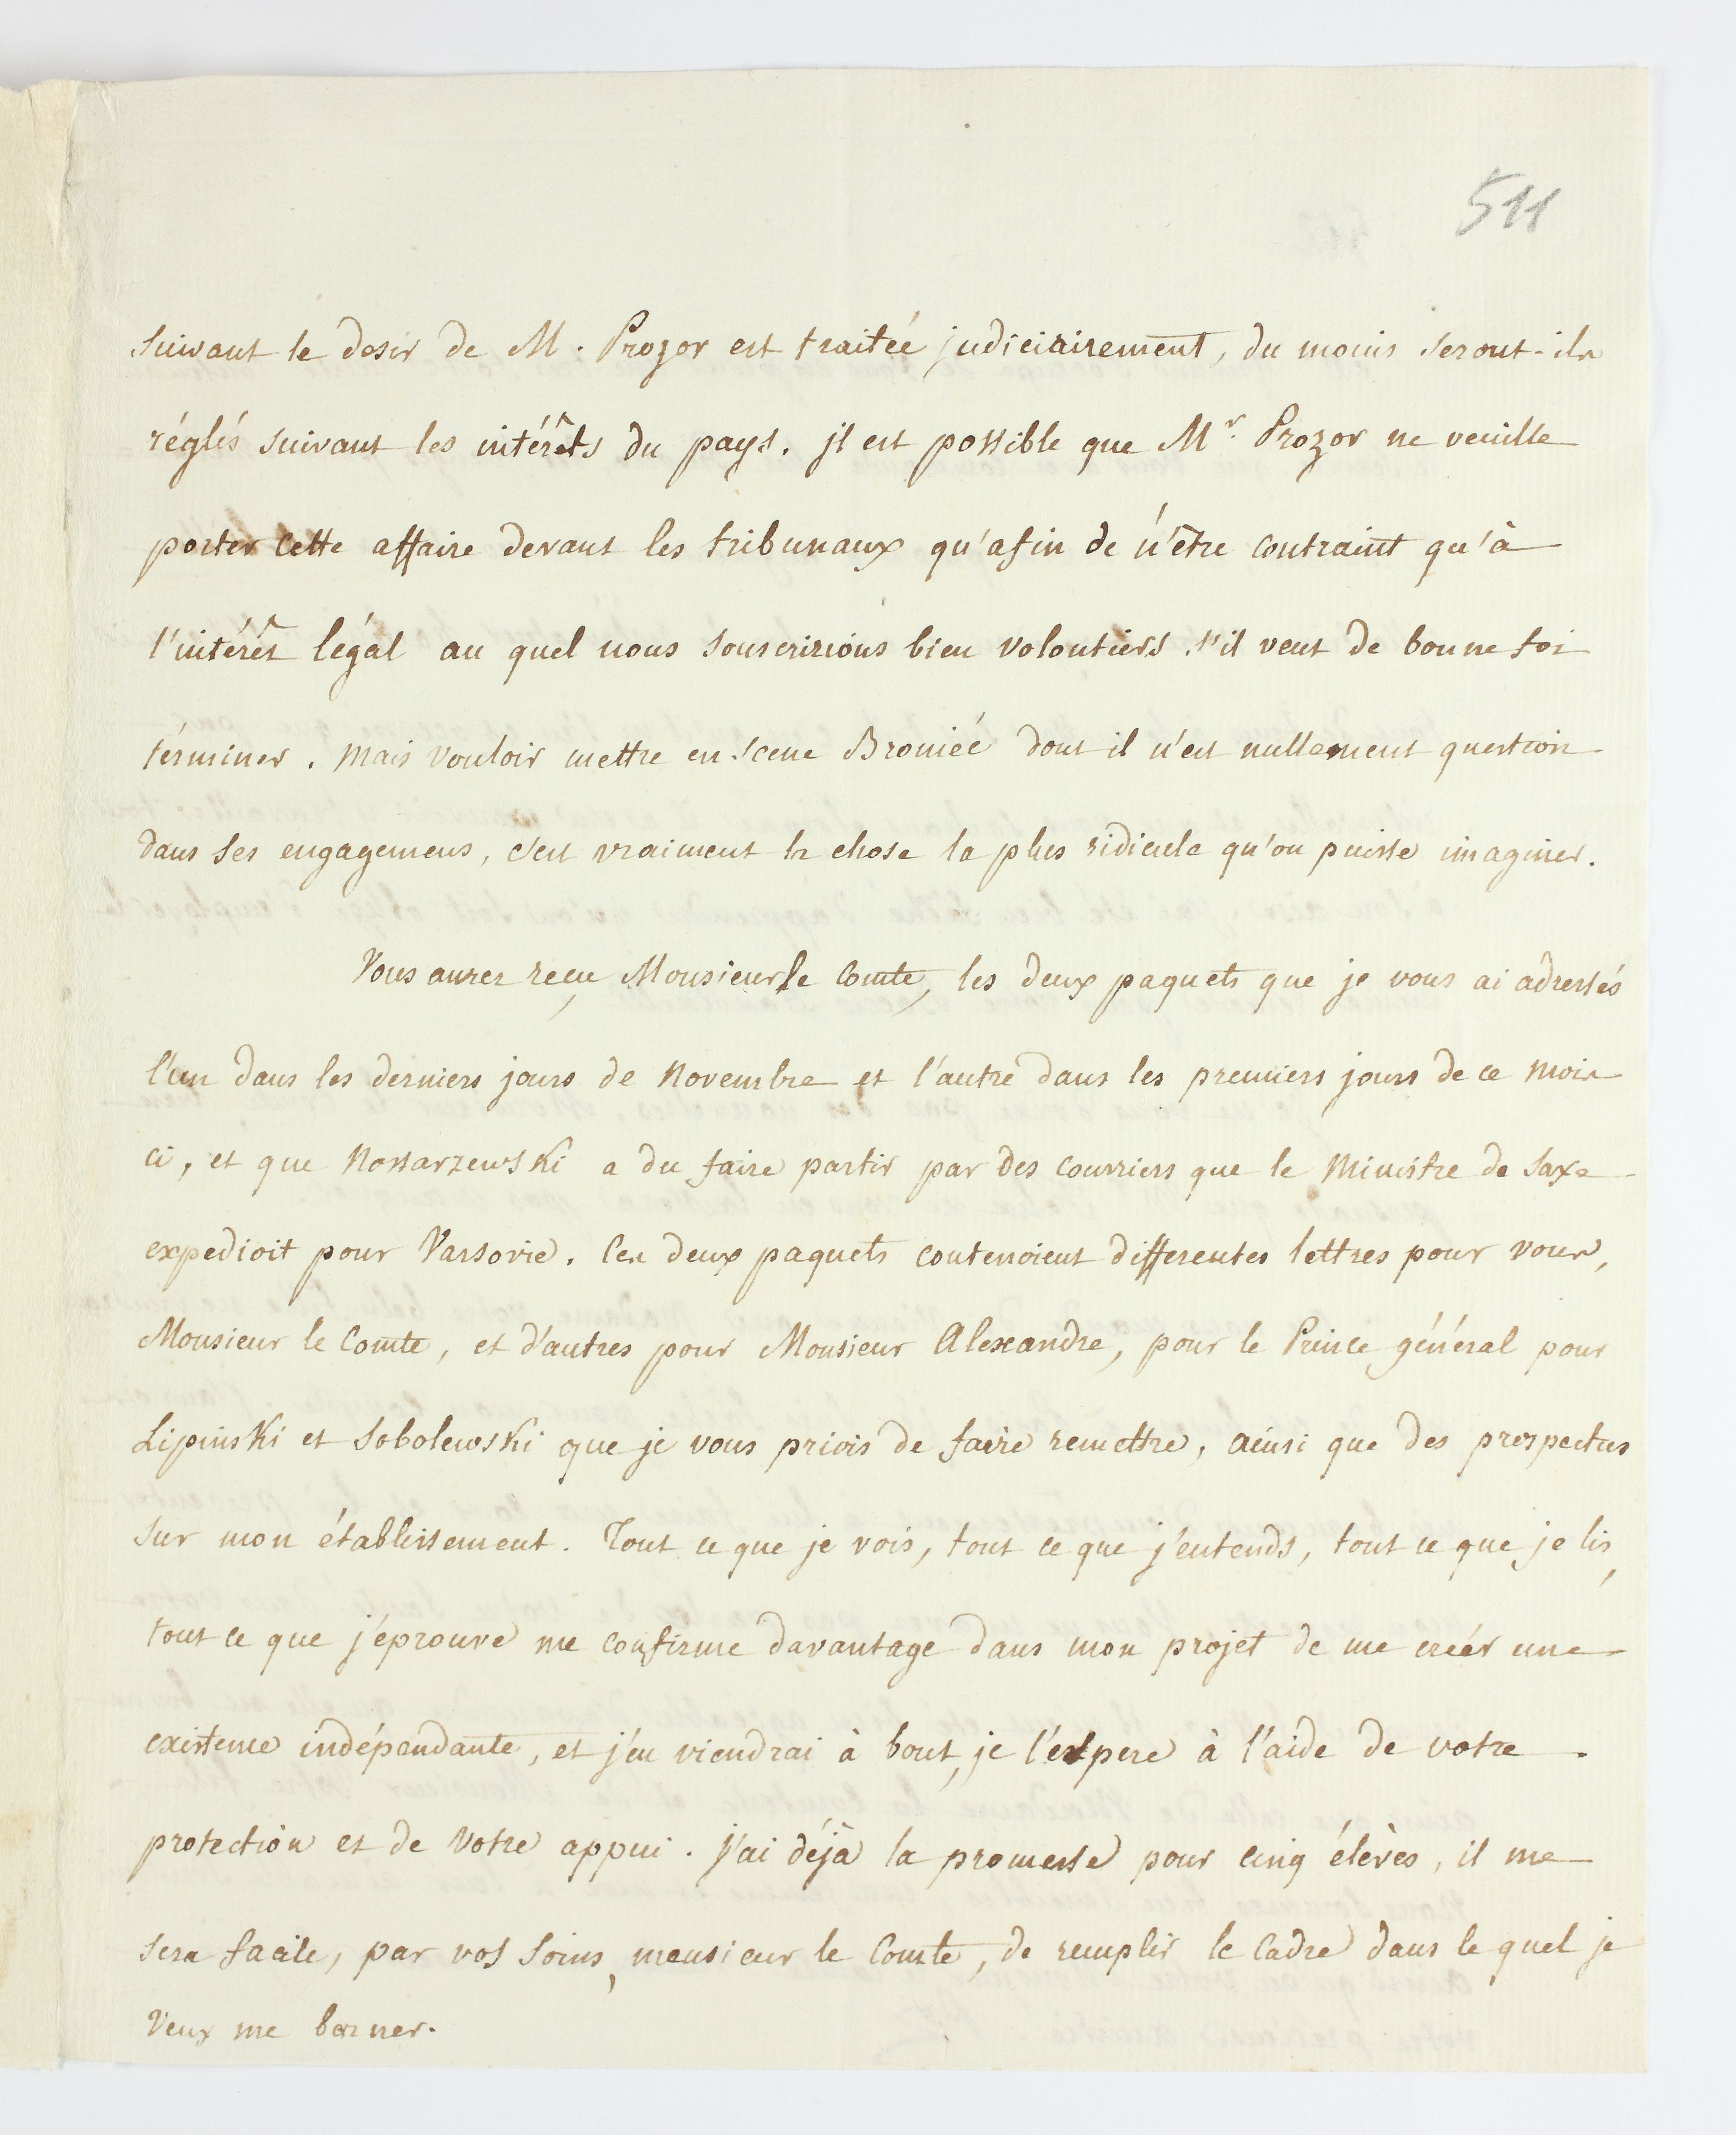 511
suivant le desir de M. Prozor est traitée judiciairement, du moins seront-ils
réglés suivant les intérêts du pays. jl est possible que Mr. Prozor ne veuille
porter cette affaire devant les tribunaux qu'afin de n'être contraint qu'à
l'intérêt légal au quel nous souscririons bien volontiers s'il veut de bonne foi
términer. Mais vouloir mettre en scene Broniéé dont il n'est nullement question
dans ses engagemens, c'est vraiment la chose la plus ridicule qu'on puisse imaginer.
Vous aurez reçu, Monsieur le Comte, les deux paquets que je vous ai adressés
l'un dans les derniers jours de Novembre et l'autre dans les premiers jours de ce mois
ci, et que Nossarzewski a du faire partir par des couriers que le Ministre de Saxe
expedioit pour Varsovie. Ces deux paquets contenoient differentes lettres pour vous,
Monsieur le Comte, et d'autres pour Monsieur Alexandre, pour le Prince général pour
Lipinski et Sobolewski que je vous priois de faire remettre, ainsi que des prospectus
sur mon établissement. Tout ce que je vois, tout ce que j'entends, tout ce que je lis,
tout ce que j'éprouve me confirme davantage dans mon projet de me créér une
existence indépendante, et j'en viendrai à bout, je l'espere à l'aide de votre
protection et de votre appui. J'ai déjà la promesse pour cinq élèves, il me
sera facile, par vos soins, monsieur le Comte, de remplir le Cadre dans le quel je
veux me borner.